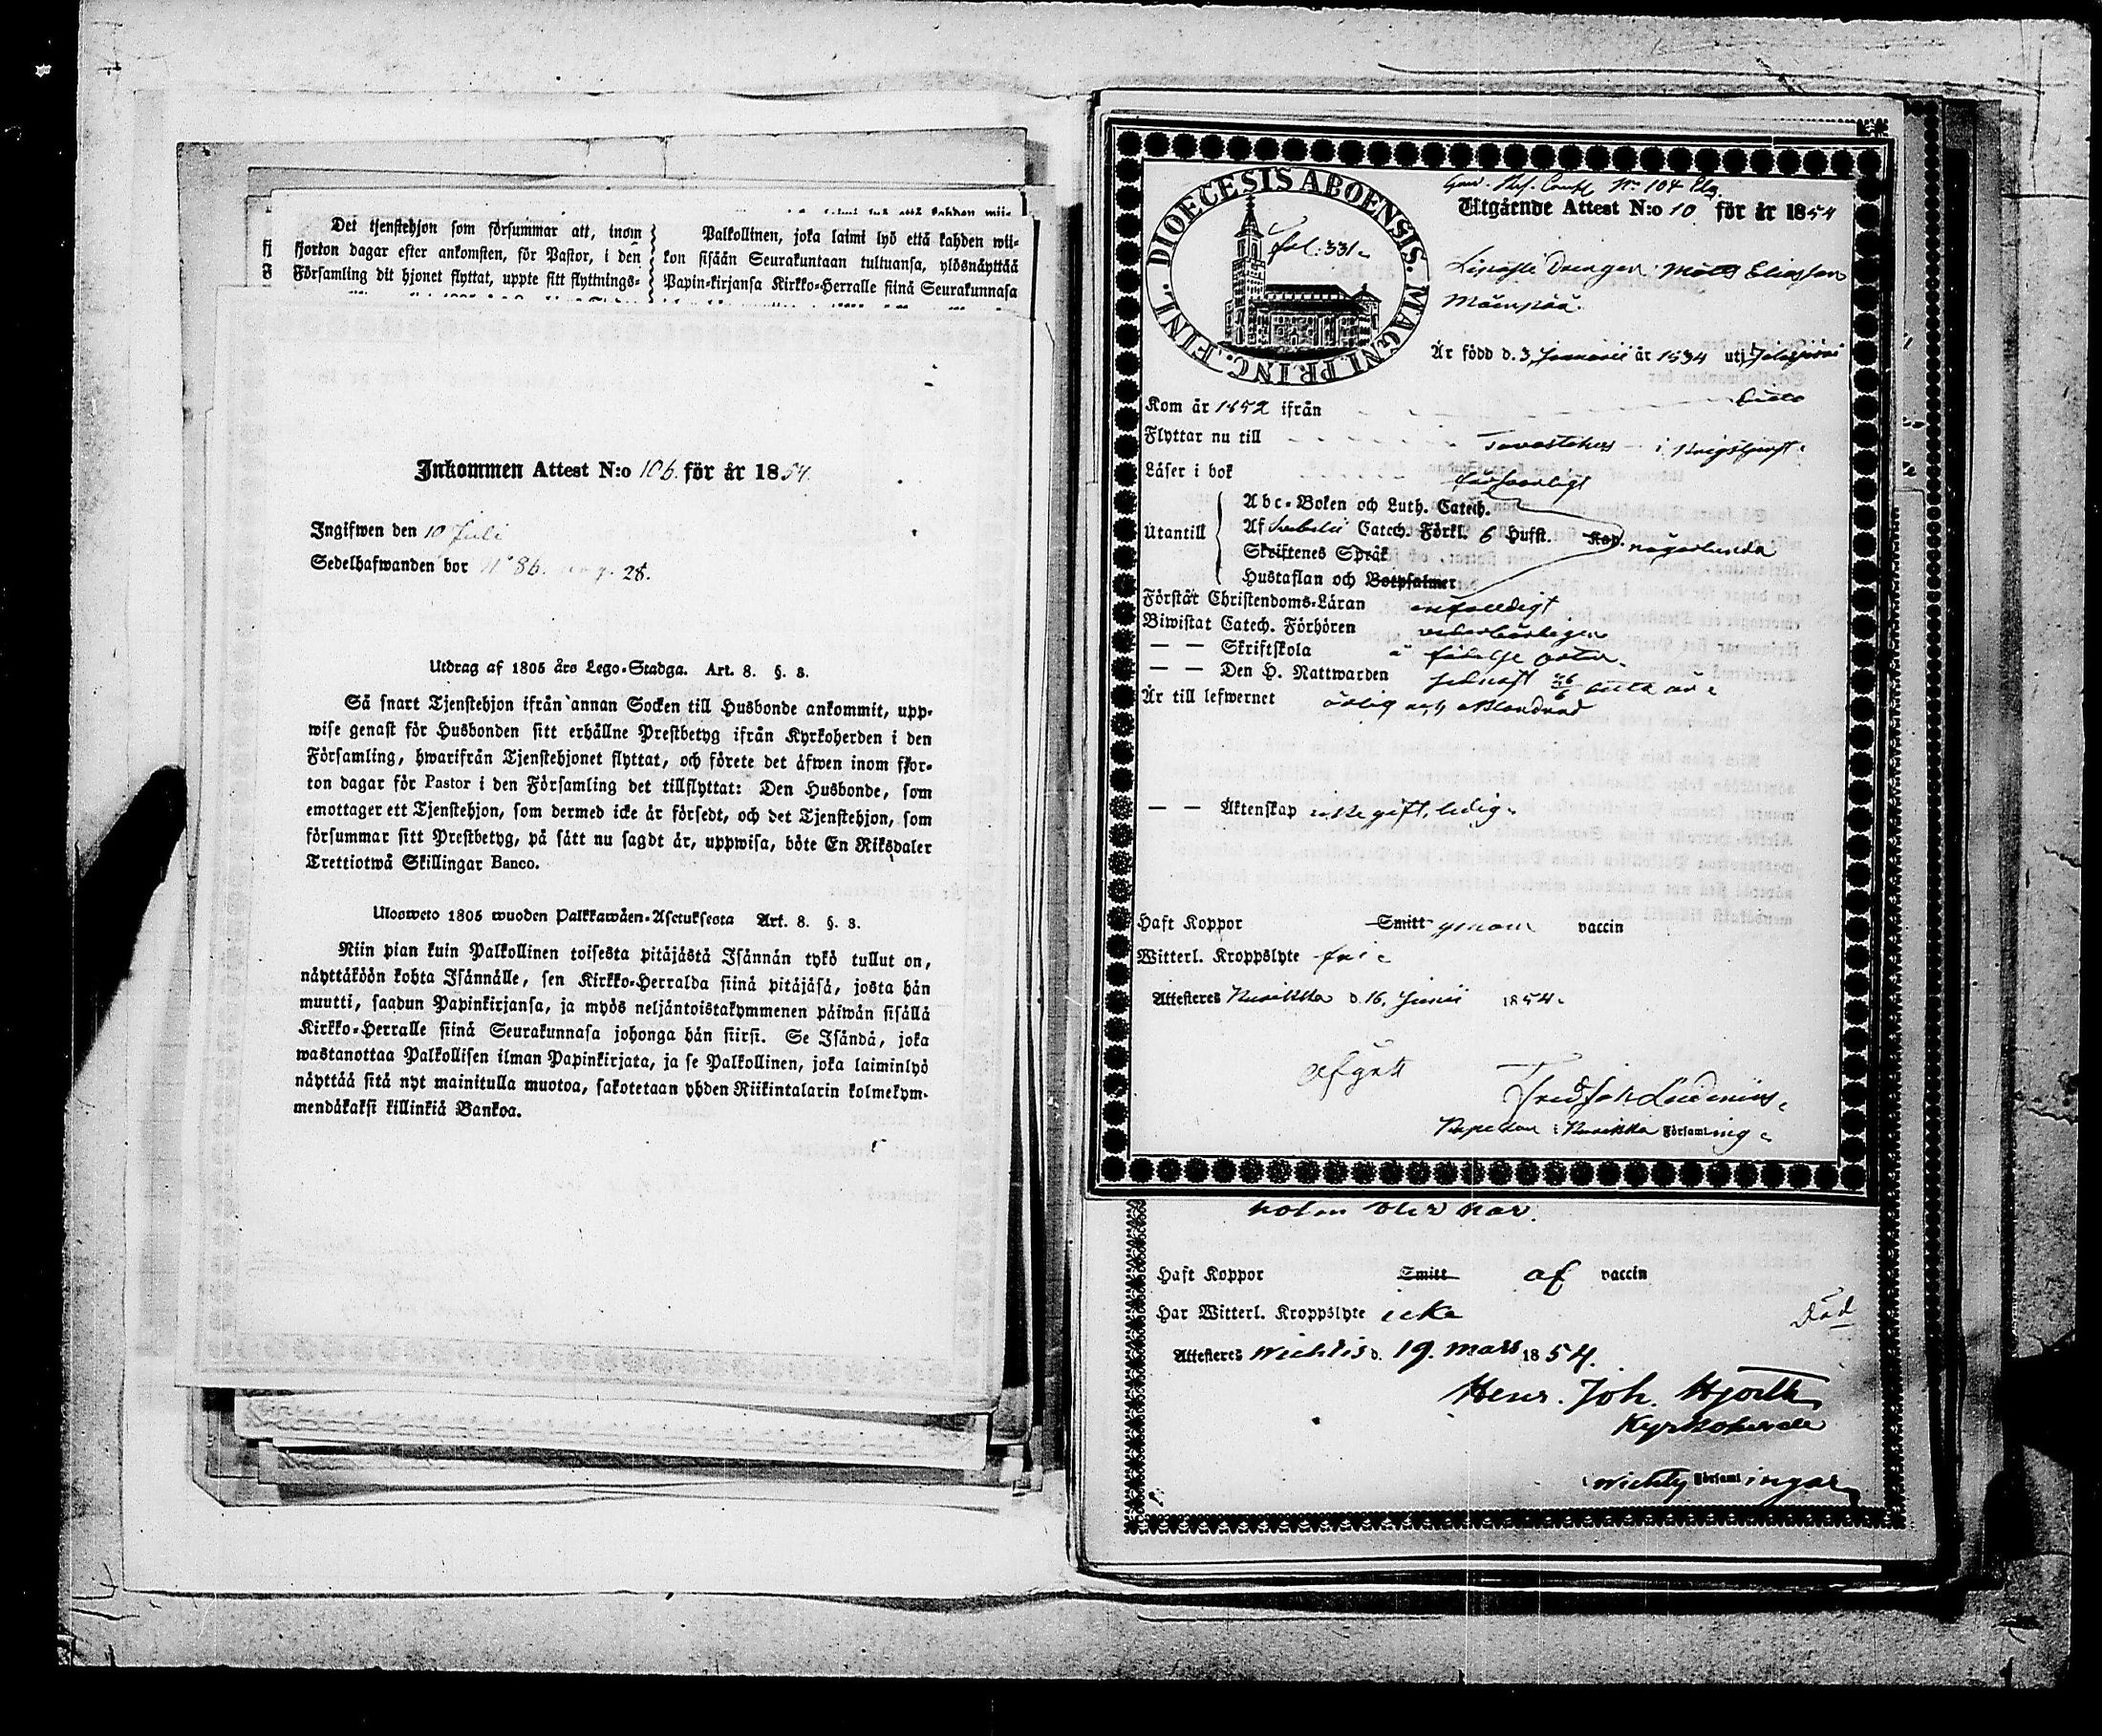 Det tjenstehjon som försummar att, inom
fjorton dagar efter ankomsten, för Pastor, i den
Församling dit hjonet flyttat, uppte sitt flyttnings-
Palkollinen, joka laimi lyö että kahden wii-
kon sisään Seurakuntaan tultuansa, ylösnäyttää
Papin-kirjansa Kirkko-Herralle siinä Seurakunnasa
Inkommen Attest N:o 106. för år 1854.
Ingifwen den 10 Juli
Sedelhafwanden bor N:o 86. 28.
Utdrag af 1805 års Lego-Stadga. Art. 8. §. 8.
Så snart Tjenstehjon ifrån annan Socken till Husbonde ankommit, upp-
wise genast för Husbonden sitt erhållne Prestbetyg ifrån Kyrkoherden i den
Församling, hwarifrån Tjenstehjonet flyttat, och förete det äfwen inom fjor-
ton dagar för Pastor i den Församling det tillflyttat: Den Husbonde, som
emottager ett Tjenstehjon, som dermed icke är försedt, och det Tjenstehjon, som
försummar sitt Prestbetyg, på sätt nu sagdt är, uppwisa, böte En Riksdaler
Trettiotwå Skillingar Banco.
Ulosweto 1805 wuoden Palkkawäen-Asetuksesta Art. 8. §. 8.
Niin pian kuin Palkollinen toisesta pitäjästä Isännän tykö tullut on,
näyttäköön kohta Isännälle, sen Kirkko-Herralda siinä pitäjäsä, josta hän
muutti, saadun Papinkirjansa, ja myös neljäntoistakymmenen päiwän sisällä
Kirkko-Herralle siinä Seurakunnasa johonga hän siirsi. Se Isändä, joka
wastanottaa Palkollisen ilman Papinkirjata, ja se Palkollinen, joka laiminlyö
näyttää sitä nyt mainitulla muotoa, sakotetaan yhden Riikintalarin kolmekym-
mendäkaksi killinkiä Bankoa.
DIOECESIS ABOENSIS. MAGNI. PRINC. FINL.
fol. 331
N:o 104
Utgående Attest N:o 10 för år 1854
Drengen Matts Eliasson
Mäenpää
Är född d. 3 Januarii år 1834 uti
Kom år 1852 ifrån
Flyttar nu till Tavastehus i Krigstjenst
Läser i bok försvarligt
Utantill
Abc-Boken och Luth. Catech.
Af Catech. Förkl. 6 Hufst. Kap. någorlunda
Skriftenes Språk
Hustaflan och Botpsalmer
Förstår Christendoms-Läran enfaldigt
Biwistat Catech. Förhören vederbörligen
— — Skriftskola å
— — Den H. Nattwarden sednast 26/6
Är till lefwernet ärlig och oklandrad
— — Äktenskap icke gift, ledig
Haft Koppor Smitt genom vaccin
Witterl. Kroppslyte fri
Attesteres d. 16. Junii 1854.
Afgått
Församling
Haft Koppor Smitt af vaccin
Har Witterl. Kroppslyte icke
Död
Attesteres Wichtis d. 19. mars 1854.
Henr. Joh. Hjorth
Kyrkoherde
i Wichty Församlingar